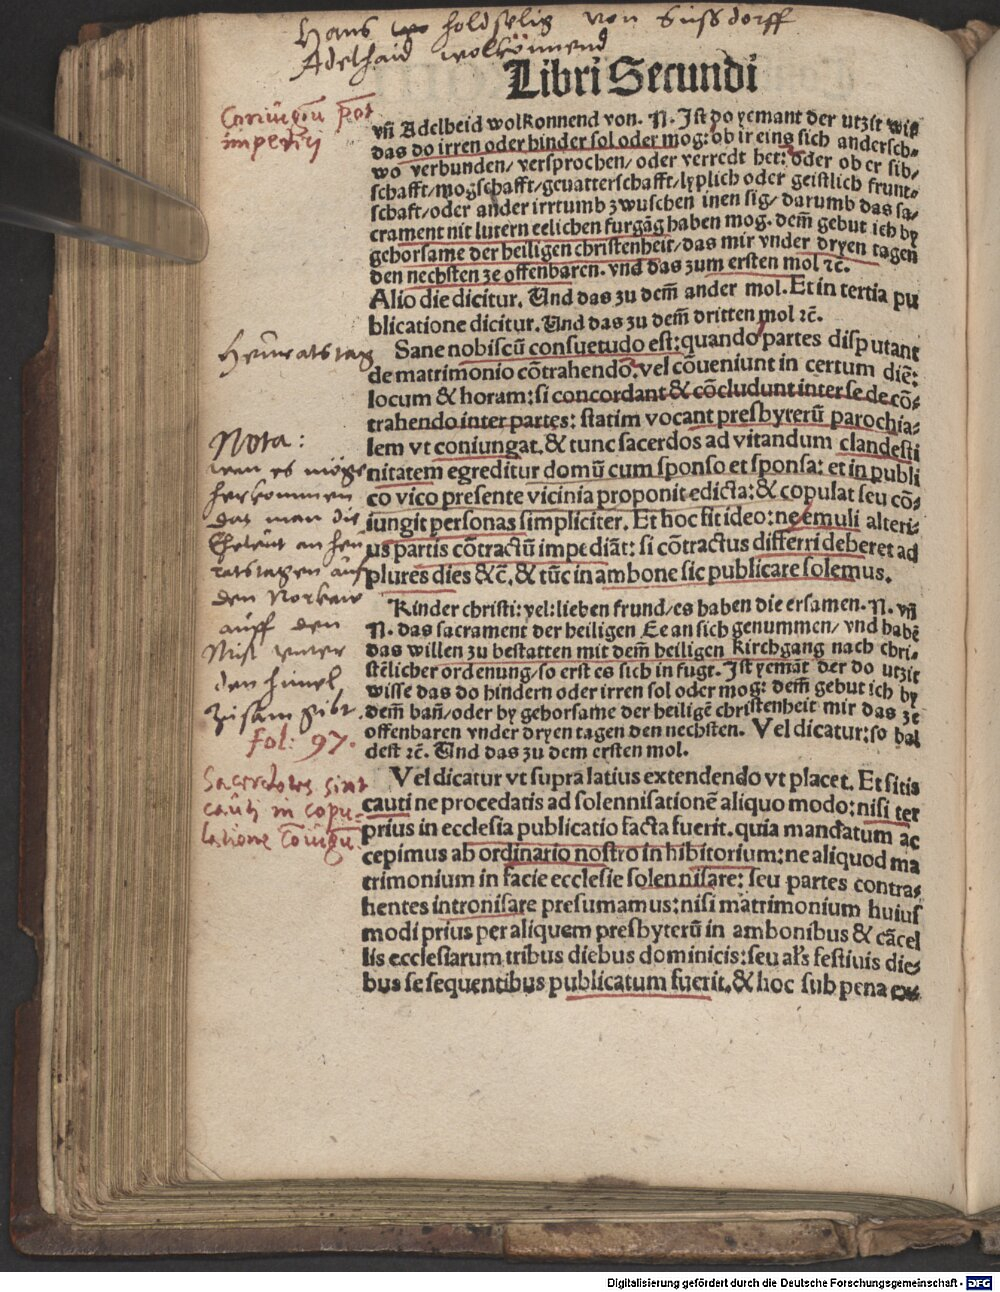 Hans holdselig von Süssdorff
Adelhaid wolkönnend
Libri Secundi
Coniugiū
vñ Adelheid wolkonnend von. N. Jst yo yemant der utzit wiß
das do irren oder hinder sol oder mog: ob ir eins sich andersch⸗
wo verbunden/ versprochen/ oder verredt het: oder ob er sib⸗
schafft/mogschafft/geuatterschafft/lyplich oder geistlich frunt⸗
schaft/oder ander irrtumb zwuschen inen sig/ darumb das sa⸗
crament nit lutern eelichen furgāg haben mog. dem̄ gebut ich by
gehorsame der heiligen christenheit/das mir vnder dryen tagen
den nechsten ze offenbaren. vnd das zum ersten mol ⁊c̄.
Alio die dicitur. Und das zu dem̄ ander mol. Et in tertia pu
blicatione dicitur. Und das zu dem̄ dritten mol ⁊c̄.
Heüratstag
Sane nobiscū consuetudo est: quando partes disputant
de matrimonio cōtrahendo: vel cōueniunt in certum diē:
locum & horam: si concordant & cōcludunt inter se de cō⸗
trahendo inter partes: statim vocant presbyterū parochia⸗
lem vt coniungat. & tunc sacerdos ad vitandum clandesti
nitatem egreditur domū cum sponso et sponsa: et in publi
co vico presente vicinia proponit edicta: & copulat seu cō⸗
iungit personas simpliciter. Et hoc fit ideo: ne emuli alteri⸗
us partis cōtractū impediāt: si cōtractus differri deberet ad
plures dies &c̄. & tūc in ambone sic publicare solemus.
Nota:
wan es möge
herkommen
das man die
Eheleüt an heü
ratstagen auff
den
auff den
Mist vnter
den himel
zusam gibt.
fol: 97.
Kinder christi: vel: lieben frund/es haben die ersamen. N. vñ
N. das sacrament der heiligen Ee an sich genummen/ vnd habē
das willen zu bestatten mit dem̄ heiligen kirchgang nach chri⸗
stēlicher ordenung/so erst es sich in fugt. Jst yemāt der do utzit
wisse das do hindern oder irren sol oder mog: dem̄ gebut ich by
dem̄ bañ/oder by gehorsame der heiligē christenheit mir das ze
offenbaren vnder dryen tagen den nechsten. Vel dicatur: so bal
dest ⁊c̄. Und das zu dem ersten mol.
Sacerdotes sint
cauti in copu⸗
latione cōiugū.
Vel dicatur vt supra latius extendendo vt placet. Et sitis
cauti ne procedatis ad solennisationē aliquo modo: nisi ter
prius in ecclesia publicatio facta fuerit. quia mandatum ac
cepimus ab ordinario nostro inhibitorium: ne aliquod ma
trimonium in facie ecclesie solennisare: seu partes contra⸗
hentes intronisare presumamus: nisi matrimonium huius
modi prius per aliquem presbyterū in ambonibus & cācel
lis ecclesiarum tribus diebus dominicis: seu aƚs festiuis die⸗
bus se sequentibus publicatum fuerit. & hoc sub pena ex⸗
Digitalisierung gefördert durch die Deutsche Forschungsgemeinschaft - DFG